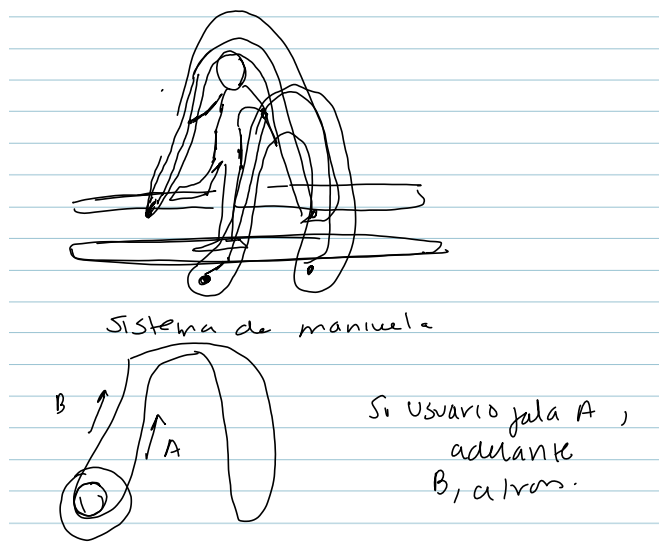 Sistema de manivela
B
A
Si usuario jala A,
adelante
B, atras.